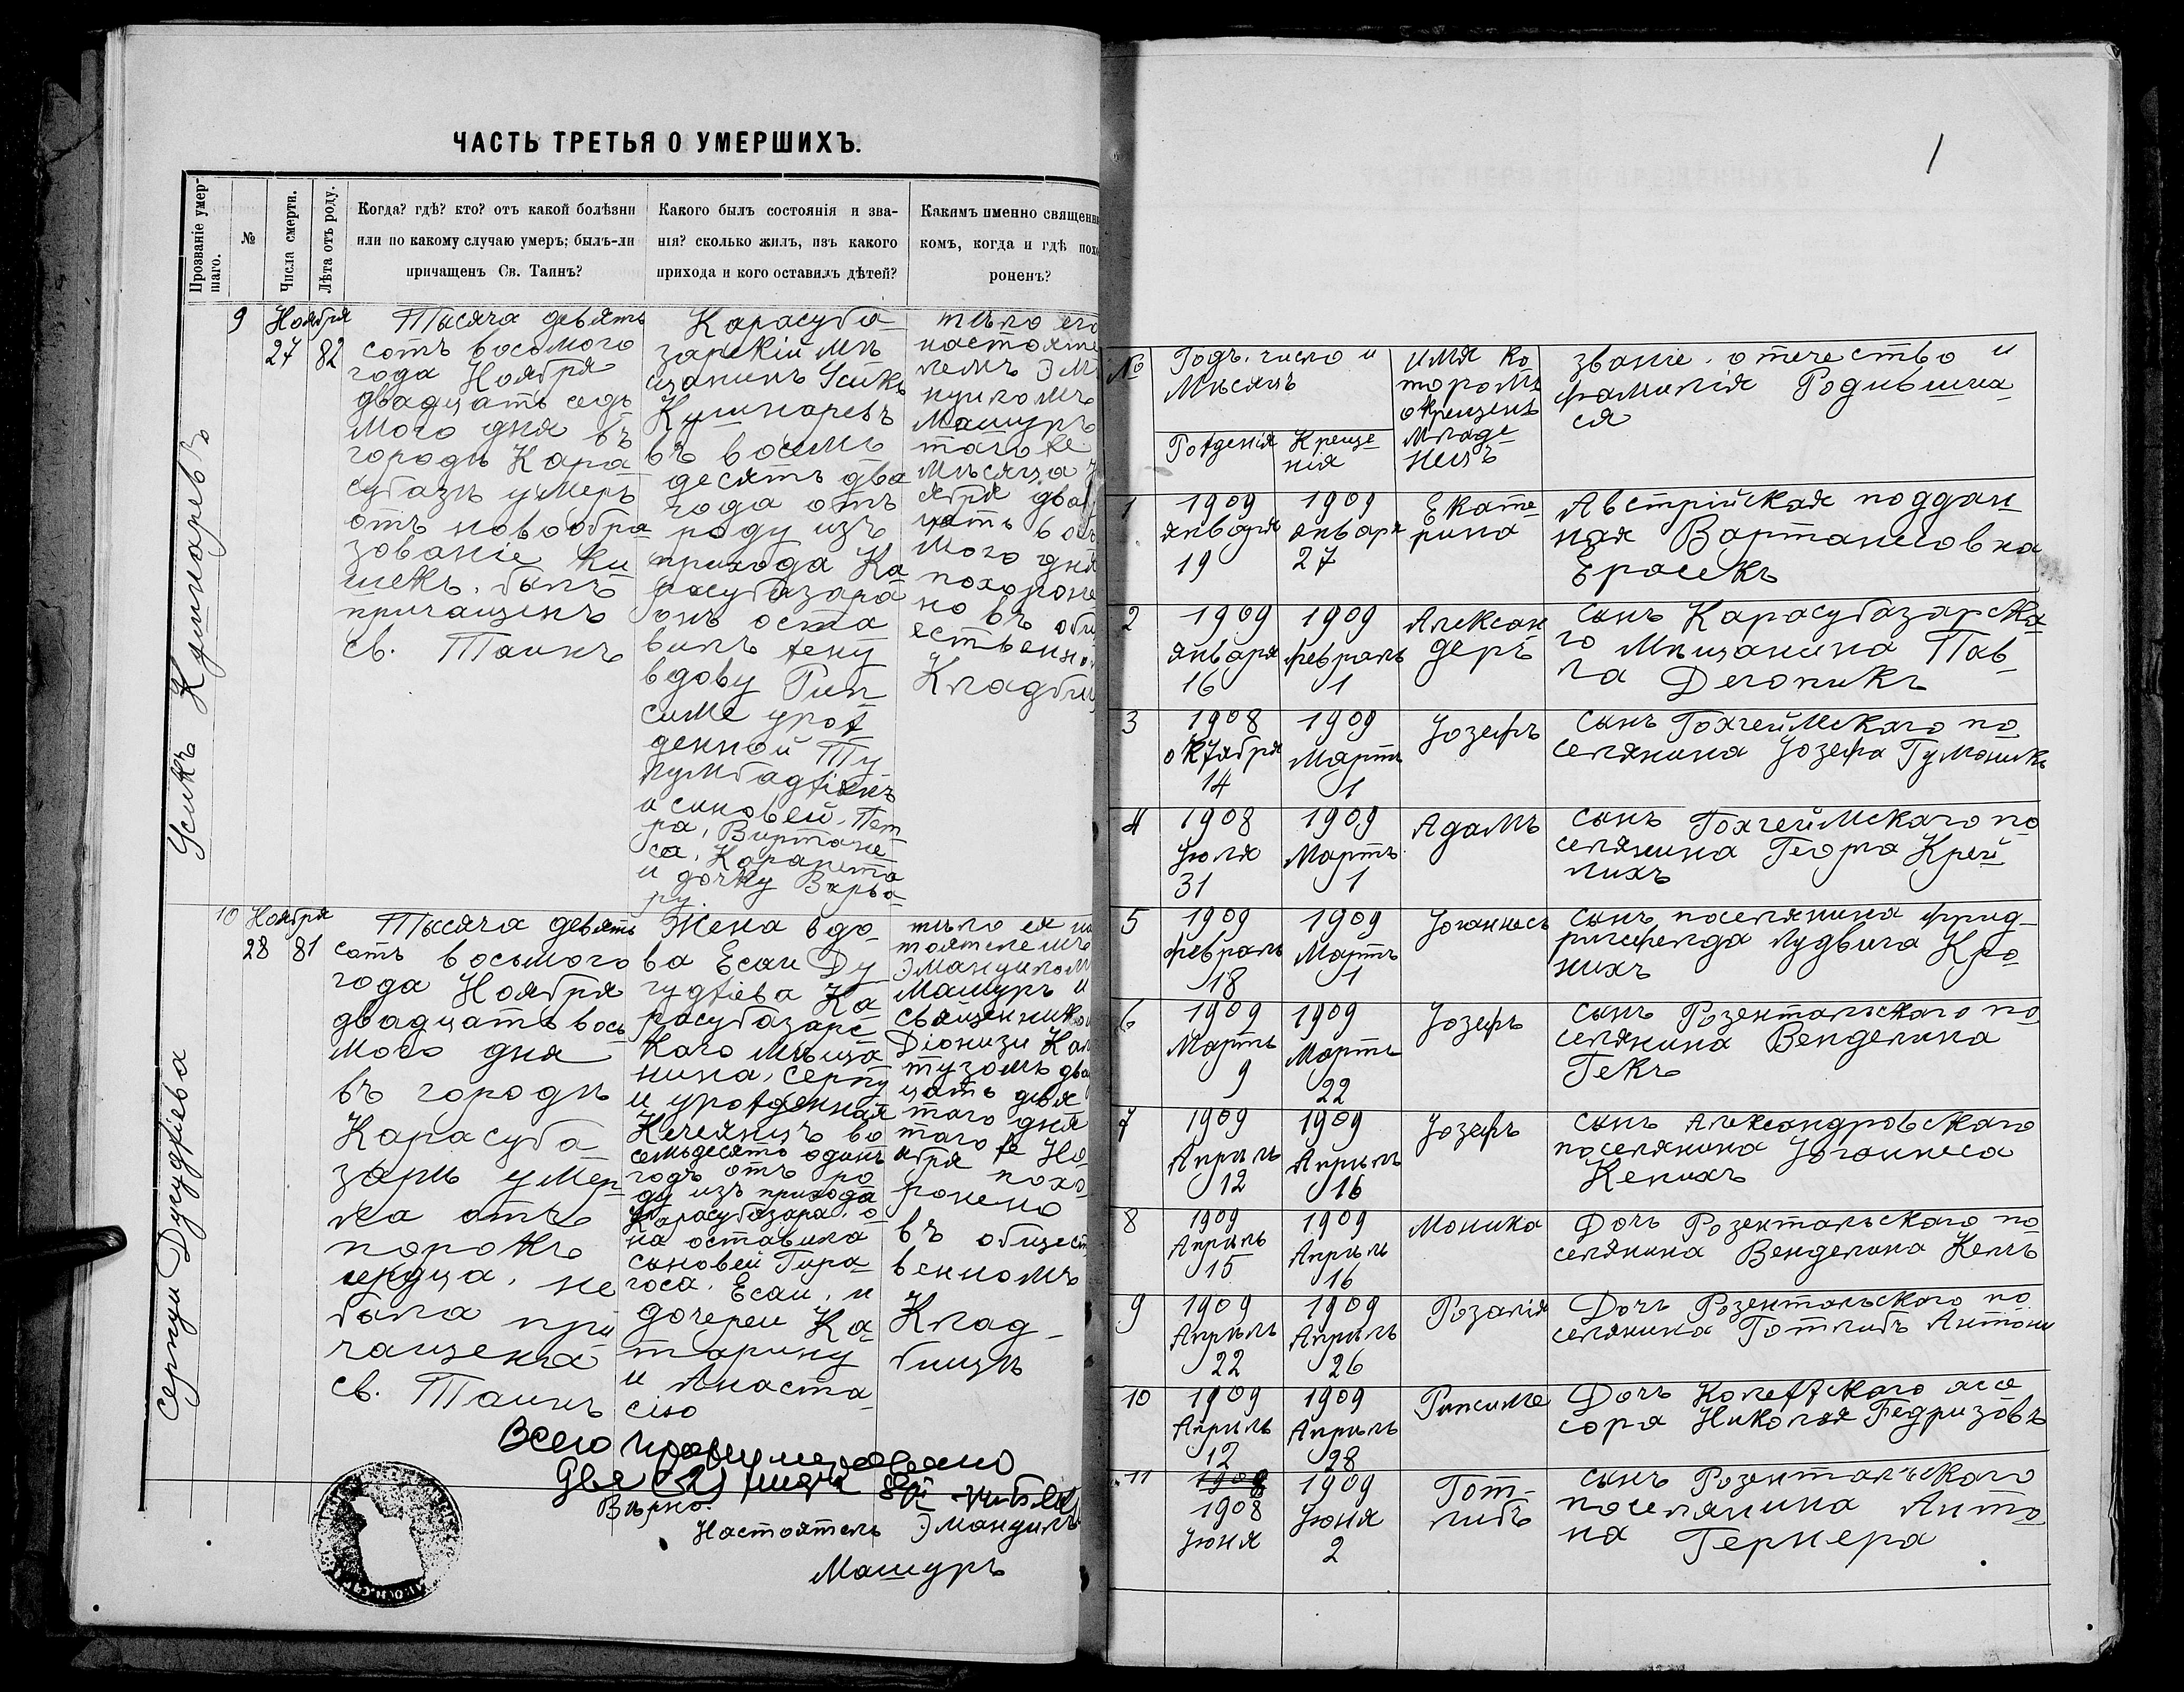 ЧАСТЬ ТРЕТЬЯ О УМЕРШИХЪ.
Прозваніе умер-
шаго.
№
Числа смерти.
Лѣта отъ роду.
Когда? гдѣ? кто? отъ какой болѣзни
или по какому случаю умеръ; былъ-ли
причащенъ Св. Таинъ?
Какого былъ состоянія и зва-
нія? сколько жилъ, изъ какого
прихода и кого оставилъ дѣтей?
Какимъ именно священни
комъ, когда и гдѣ похо
роненъ?
Усикъ Кушнаревъ
9
Ноября
27
82
Тысяча девять
сотъ восомого
года Ноября
двадцать седь
мого дня въ
городѣ Кара
субазѣ умеръ
отъ новообра
зованіе ки
шекъ. былъ
причащенъ
св. Таинъ
Карасуба
зарскій мѣ
щанинъ Усикъ
Кушнаревъ
въ восемь
десять два
года отъ
роду изъ
прихода Ка
расубазара
онъ оста
вилъ жену
вдову Рип
симе урож
денной Ту
лумбаджіянъ
и сыновей. Пет
ра, Виртане
са, Карапета
и дочку Варва
ру.
тѣло его
настояте
лемъ Эма
нуиломъ
Машуръ
того же
мѣсяца
ября двад
цать вось
мого дня
похороне
но въ общ
ественном
Кладбищ
Серпуи Дугуджіева
10
Ноября
28
81
Тысяча девять
сотъ восьмого
года Ноября
двадцать вось
мого дня
въ городѣ
Карасуба
зарѣ умер
ла отъ
порокъ
сердца, не
была при
чащена
св. Таинъ
Жена вдо
ва Есаи Ду
гуджіева Ка
расубазарс
каго мѣща
нина, Серпу
и урожденная
Кечеянцъ во
семьдесятъ одинъ
годъ отъ ро
ду изъ прихода
Карасубазара, о
на оставила
сыновей Гира
госа, Есаи, и
дочереи Ка
тарину
и Анаста
сію
тѣло ея на
тоятелемъ
Эмануилом
Машуръ и
священнико
Діонизи Кал
тузомъ два
цать девя
таго дня
того же Но
ября похо
ронено
въ общест
венномъ
Клад-
бищѣ
Всего пронумеровано
Вѣрно:
Настоятель Эмануилъ
Машуръ
1
№
Годъ, число и
Мѣсяцъ
Рожденія
Креще
нія
имя ко
торомъ
окрещенъ
младе
нецъ
званіе, отечество и
фамилія Родивша
ся
1
1909
января
19
1909
января
27
Екате
рина
Австрійская поддан
ная Вартанисовна
Еросекъ
2
1909
января
16
1909
февраль
1
Алексан
деръ
сынъ Карасубазарска
го мѣщанина Пав
ла Дегоникъ
3
1908
октября
14
1909
Мартъ
1
Іозефъ
сынъ Гохгеймскаго по
селянина Іозефа Гумоникъ
4
1908
Іюля
31
1909
Мартъ
1
Адамъ
сынъ Гохгеймскаго по
селянина Георга Крей
лихъ
5
1909
февраль
18
1909
Мартъ
1
Іоганнесъ
сынъ поселянина фрид
рихсфелда Лудвига Кро
нихъ
6
1909
Мартъ
9
1909
Мартъ
22
Іозефъ
сынъ Розентальскаго по
селянина Венделина
Гекъ
7
1909
Апрѣль
12
1909
Апрѣль
16
Іозефъ
сынъ Александровскаго
поселянина Іоганнеса
Келихъ
8
1909
Апрѣль
15
1909
Апрѣль
16
Моника
Дочь Розентальскаго по
селянина Венделина Келъ
9
1909
Апрѣль
22
1909
Апрѣль
26
Розалія
Дочь Розентальскаго по
селянина Готлибъ Антони
10
1909
Апрѣль
12
1909
Апрѣль
28
Рипсиме
Дочь Колежскаго асе
сора Николая Гедризовъ
11
1908
Іюня
1909
Іюня
2
Гот-
либъ
сынъ Розентальскаго
поселянина Анто
на Гернера